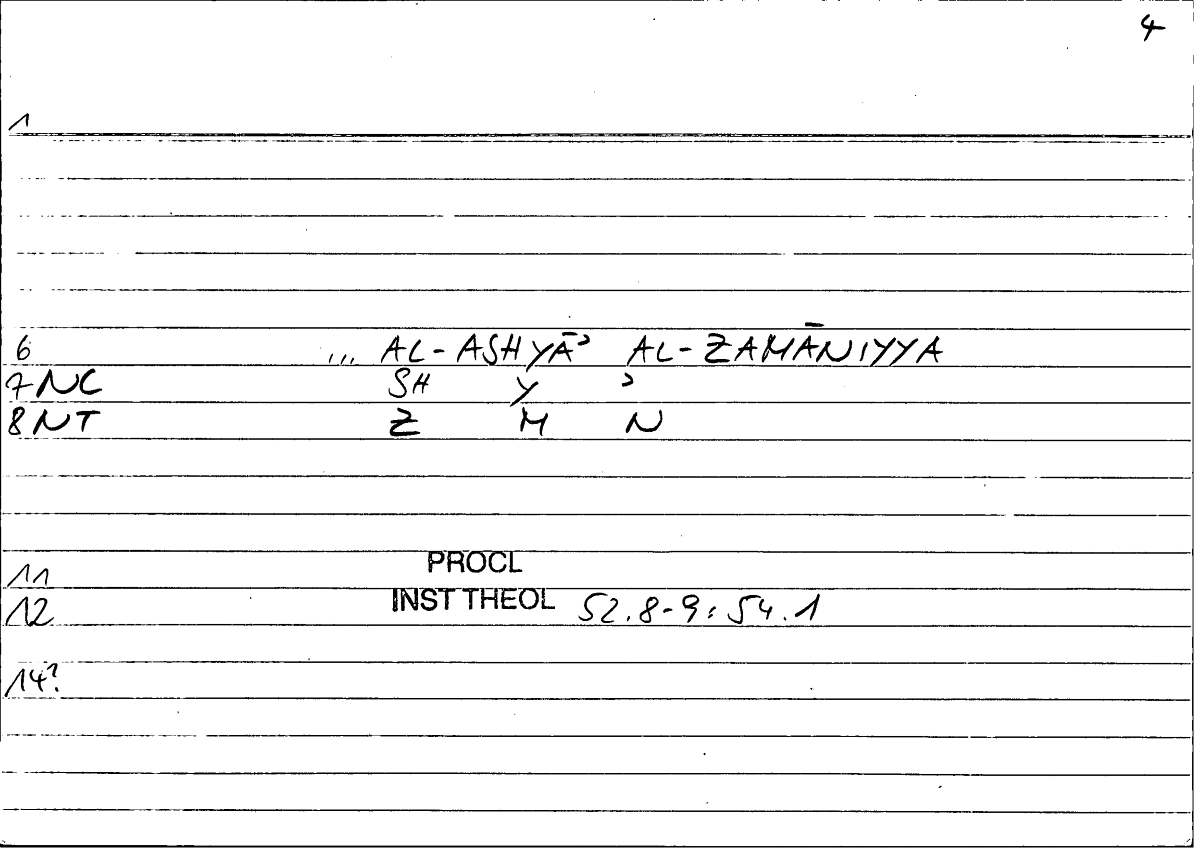 4
1
6 ... AL-ASHYĀʾ AL-ZAMĀNIYYA
7 NC SH Y ʾ
8 NT Z M N
11 PROCL
12 INST THEOL 52.8-9: 54.1
14?